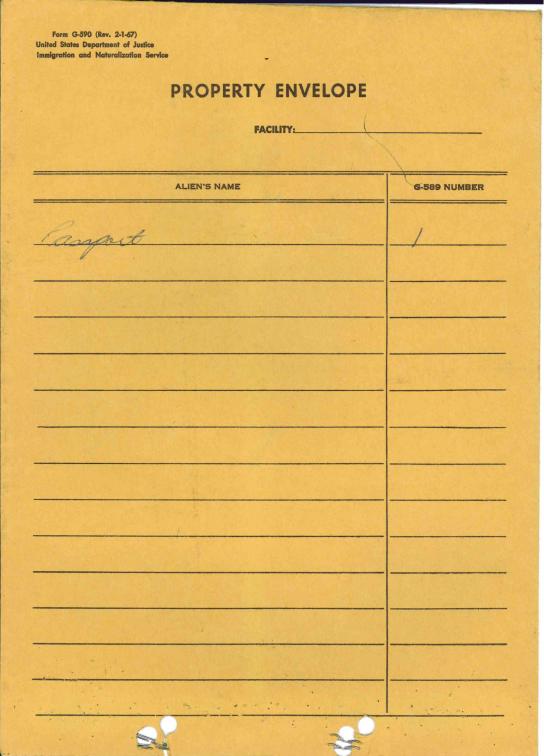 Form G-590 (Rev. 2-1-67)
United States Department of Justice
Immigration and Naturalization Service
PROPERTY ENVELOPE
FACILITY:
ALIEN'S NAME G-589 NUMBER
Passport 1